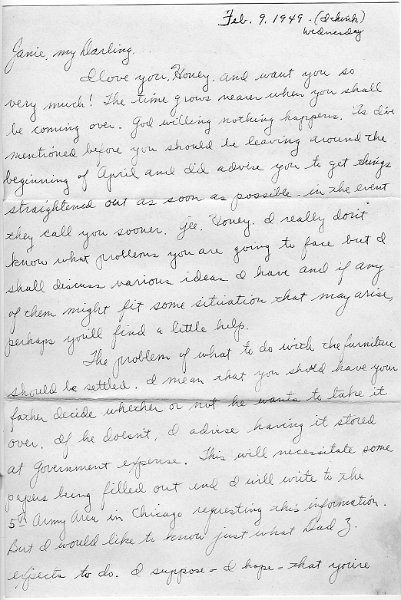 Feb. 9, 1949. (I think)
Wednesday
Janie, my Darling,
I love you, Honey, and want you so
very much! The time grows nearer when you shall
be coming over. God willing nothing happens. As I've
mentioned before you should be leaving around the
beginning of April and did advise you to get things
straightened out as soon as possible in the event
they call you sooner. Gee, Honey, I really don't
know what problems you are going to face but I
shall discuss various ideas I have and if any
of them might fit some situation that may arise,
perhaps you'll find a little help.
The problem of what to do with the furniture
should be settled. I mean that you should have your
father decide whether or not he wants to take it
over. If he doesn't, I advise having it stored
at Government expense. This will necessitate some
papers being filled out and I will write to the
5th Army Area in Chicago requesting this information.
But I would like to know just what Dad Z.
expects to do. I suppose - I hope - that you're